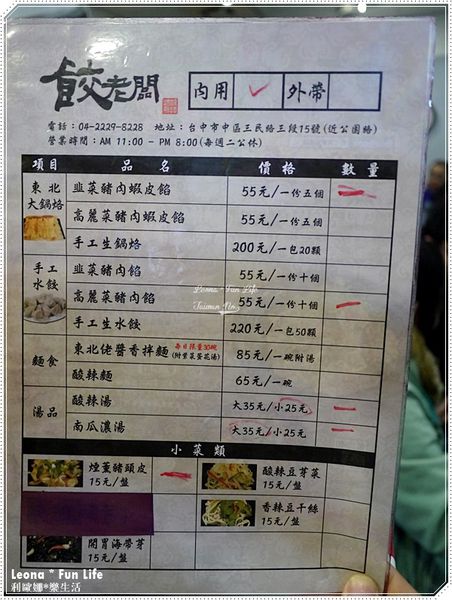 餃老闆
內用 ✓ 外帶
電話：04-2229-8228 地址：台中市中區三民路三段15號(近公園路)
營業時間：AM 11:00 - PM 8:00(每週二公休)
項目 品名 價格 數量
東北大鍋烙
韭菜豬肉蝦皮餡 55元/一份五個
高麗菜豬肉蝦皮餡 55元/一份五個
手工生鍋烙 200元/一包20顆
手工水餃
韭菜豬肉餡 55元/一份十個
高麗菜豬肉餡 55元/一份十個 一
手工生水餃 220元/一包50顆
麵食
東北佬醬香拌麵 每日限量30碗 (附紫菜蛋花湯) 85元/一碗附湯
酸辣麵 65元/一碗
湯品
酸辣湯 大35元/小25元 一
南瓜濃湯 大35元/小25元 一
小菜類
煙薰豬頭皮 15元/盤
酸辣豆芽菜 15元/盤
香辣豆干絲 15元/盤
開胃海帶芽 15元/盤
Leona * Fun Life
Leona * Fun Life
利歐娜*樂生活